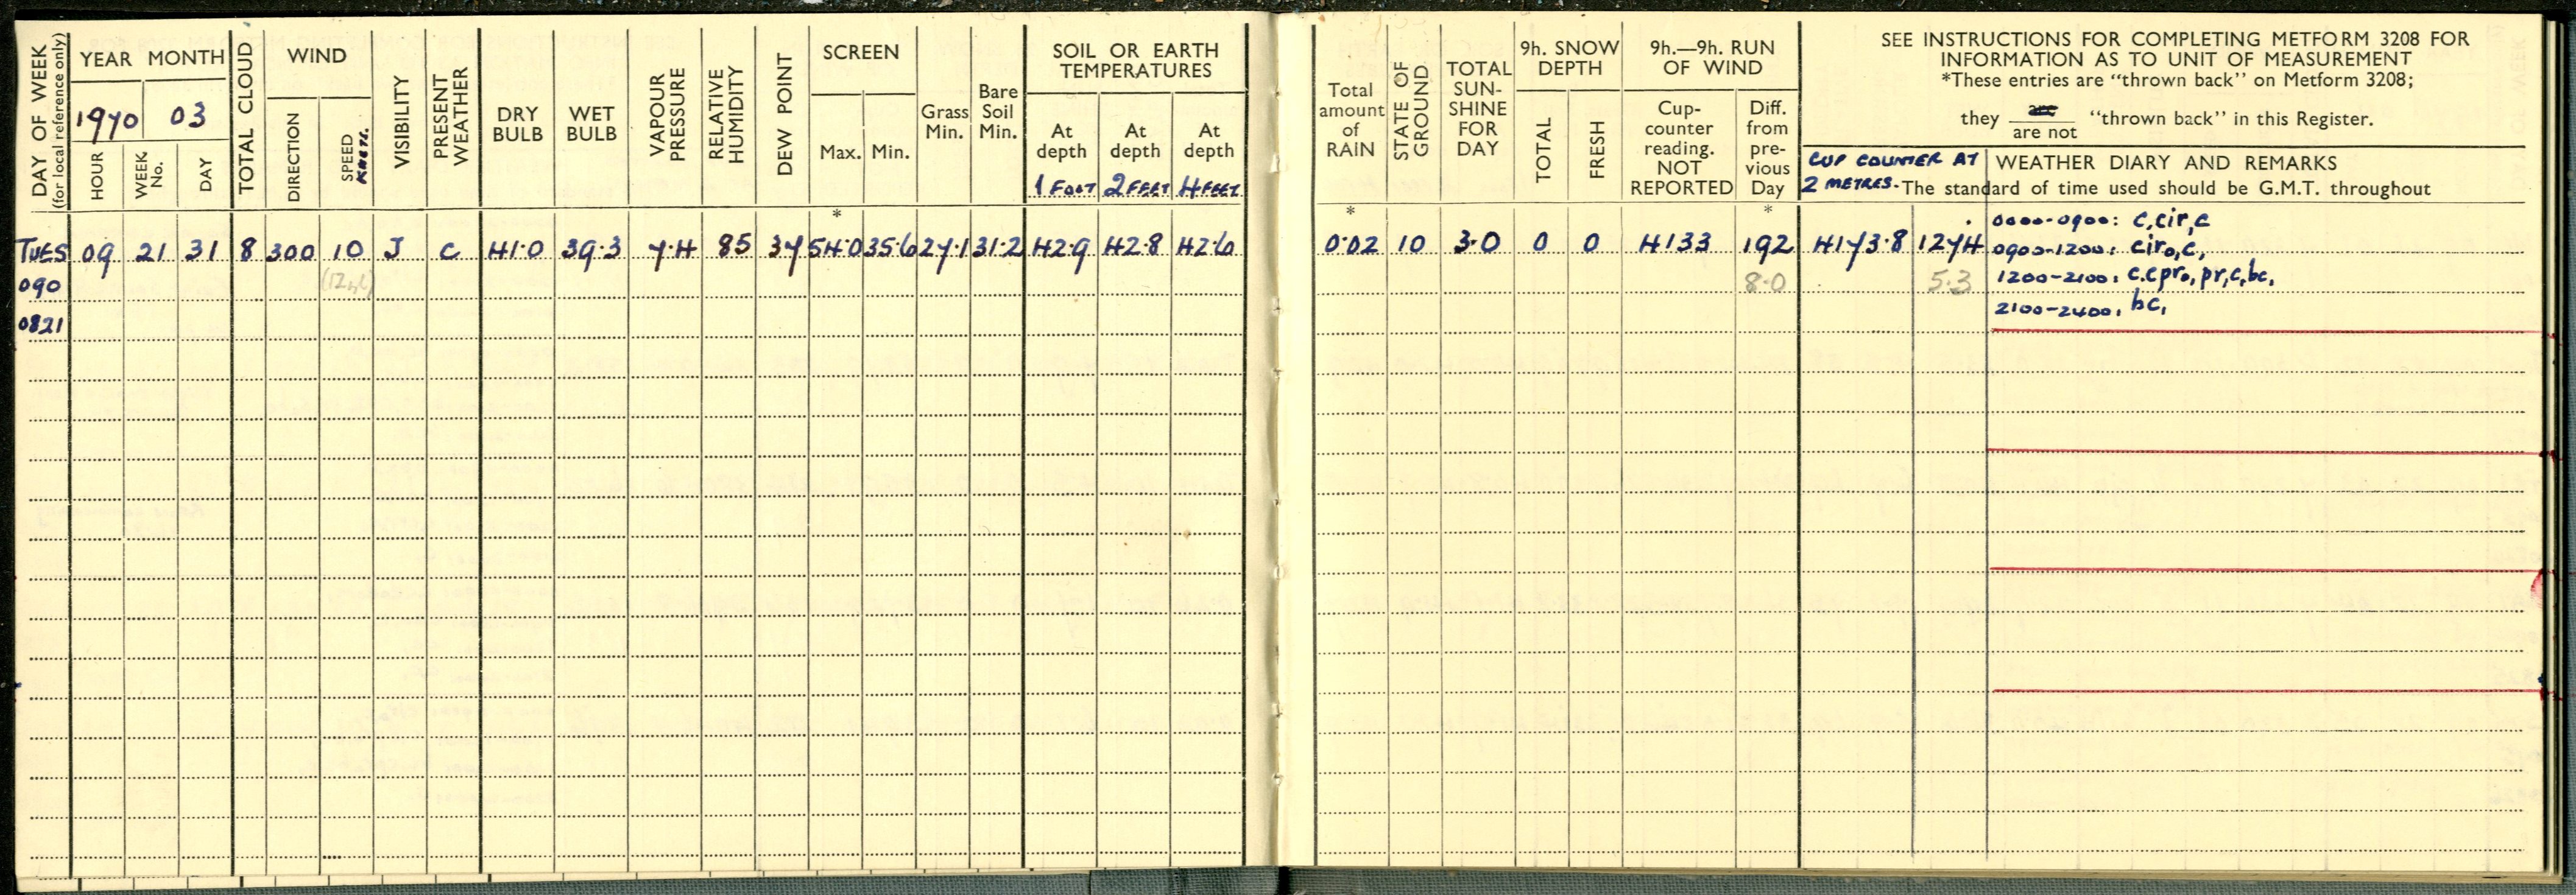 DAY OF WEEK
(for local reference only)
YEAR MONTH
1970 03
HOUR
WEEK No.
DAY
TOTAL CLOUD
WIND
DIRECTION
SPEED KNOTS.
VISIBILITY
PRESENT WEATHER
DRY BULB
WET BULB
VAPOUR PRESSURE
RELATIVE HUMIDITY
DEW POINT
SCREEN
Max. Min.
*
Grass Min.
Bare Soil Min.
SOIL OR EARTH
TEMPERATURES
At depth 1 FOOT
At depth 2 FEET
At depth 4 FEET
Total amount of RAIN
*
STATE OF GROUND
TOTAL SUN-SHINE FOR DAY
9h. SNOW DEPTH
TOTAL
FRESH
9h.—9h. RUN OF WIND
Cup-counter reading. NOT REPORTED
Diff. from pre-vious Day
*
SEE INSTRUCTIONS FOR COMPLETING METFORM 3208 FOR
INFORMATION AS TO UNIT OF MEASUREMENT
*These entries are “thrown back” on Metform 3208;
they are / are not “thrown back” in this Register.
CUP COUNTER AT
2 METRES.
WEATHER DIARY AND REMARKS
The standard of time used should be G.M.T. throughout
TUES 09 21 31 8 300 10 J C 41.0 39.3 7.4 85 37 54.0 35.6 27.1 31.2 42.9 42.8 42.6 0.02 10 3.0 0 0 4133 192 4173.8 127.4
090 8.0 5.3
0821
0000-0900: c,cir,c
0900-1200: ciro,c,
1200-2100: c.cpro, pr,c,bc,
2100-2400, bc,